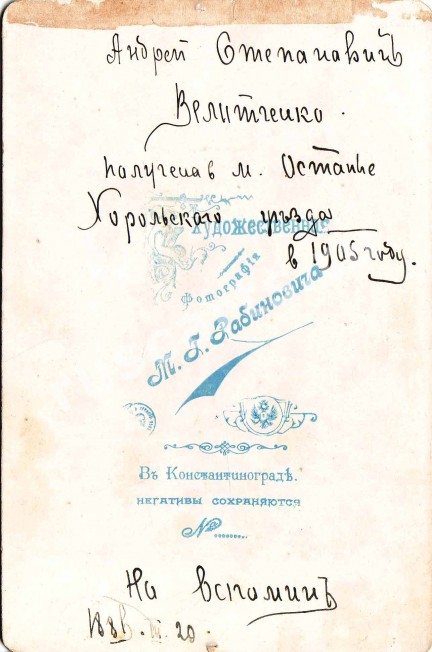 Андрей Степановичъ
Велитченко.
получена в м. Остапье
Хорольскаго уѣзда
в 1905 году.
Художественная
Фотографія
М. Г. Рабиновича
Въ Константиноградѣ.
НЕГАТИВЫ СОХРАНЯЮТСЯ
№........
На вспомин
20.